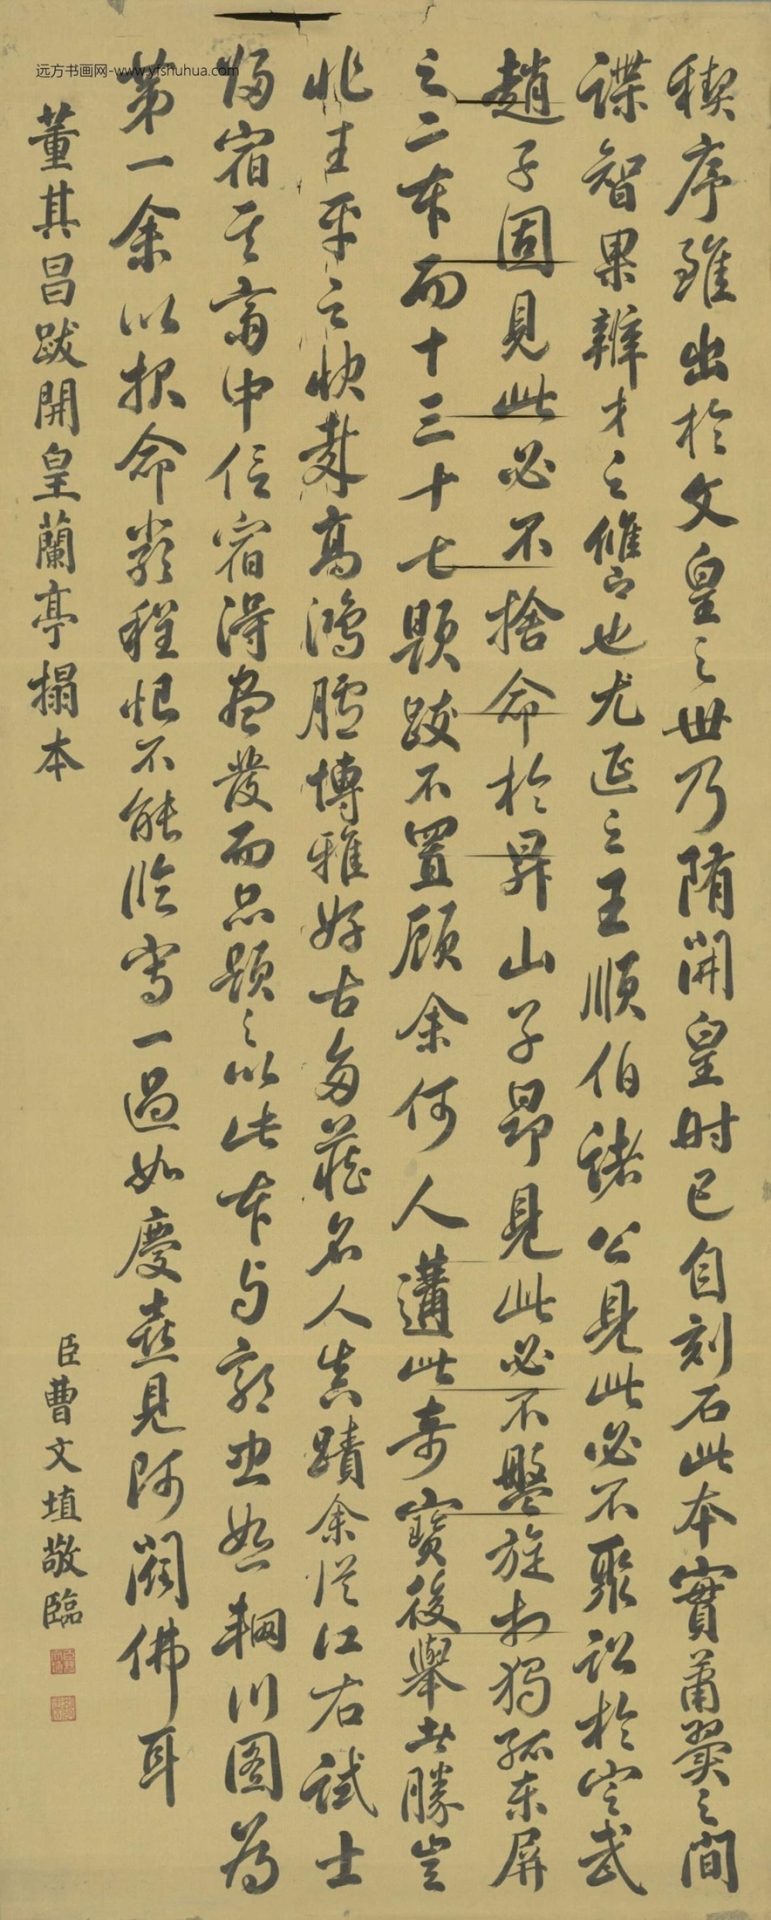 远方书画网-www.yfshuhua.com
禊序雖出於文皇之世乃隋開皇時已自刻石此本實蕭翼之間
諜智果辨才之讎也尤延之王順伯諸公見此必不聚訟於定武
趙子固見此必不捨命於昇山子昂見此必不盤旋於獨孤東屏
之二本而十三十七題跋不置顧余何人遘此奇寶後舉者勝豈
非生平之快歟高鴻臚博雅好古多藏名人真蹟余從江右試士
歸宿其齋中信宿得盡發而品題之以此本與郭忠恕輞川圖為
第一余以報命嚴程恨不能臨寫一過如慶喜見阿閦佛耳
董其昌跋開皇蘭亭搨本
臣曹文埴敬臨